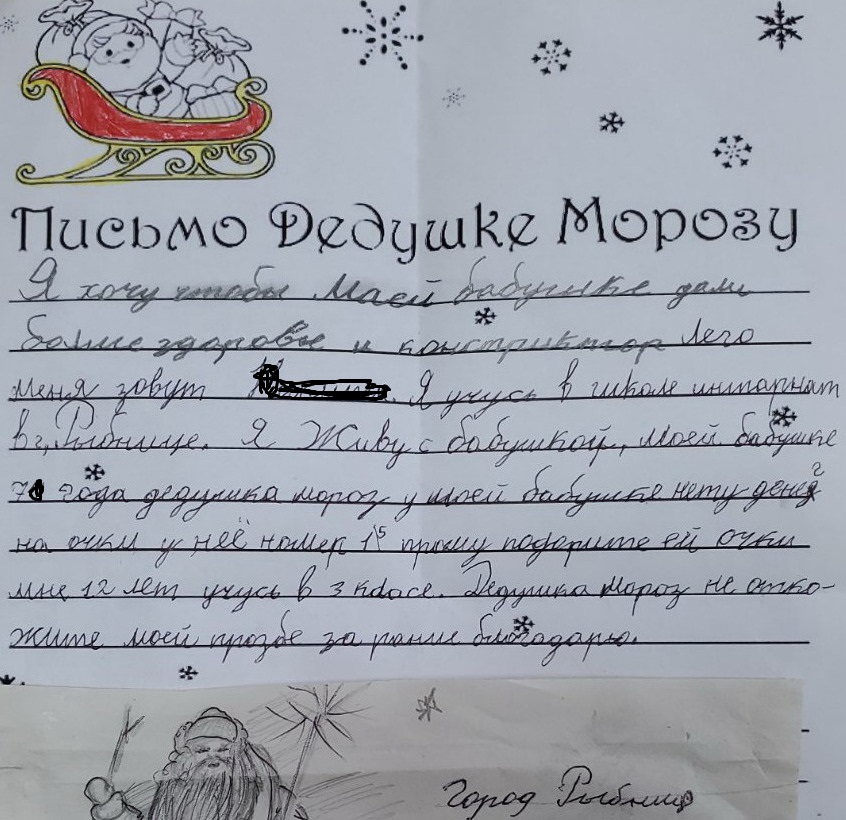 Письмо Дедушке Морозу
Я хочу чтобы Маей бабушке дали
болше здоровье и конструктор Лего
меня зовут Я учусь в школе интарнат
в г. Рыбнице. Я Живу с бабушкой, моей бабушке
71 года дедушка мороз у моей бабушке нету денег
на очки у неё номер 15 прошу подорите ей очки
мне 12 лет учусь в 3 класе. Дедушка мороз не отко-
жите моей прозбе за рание благодарю.
Город Рыбниц